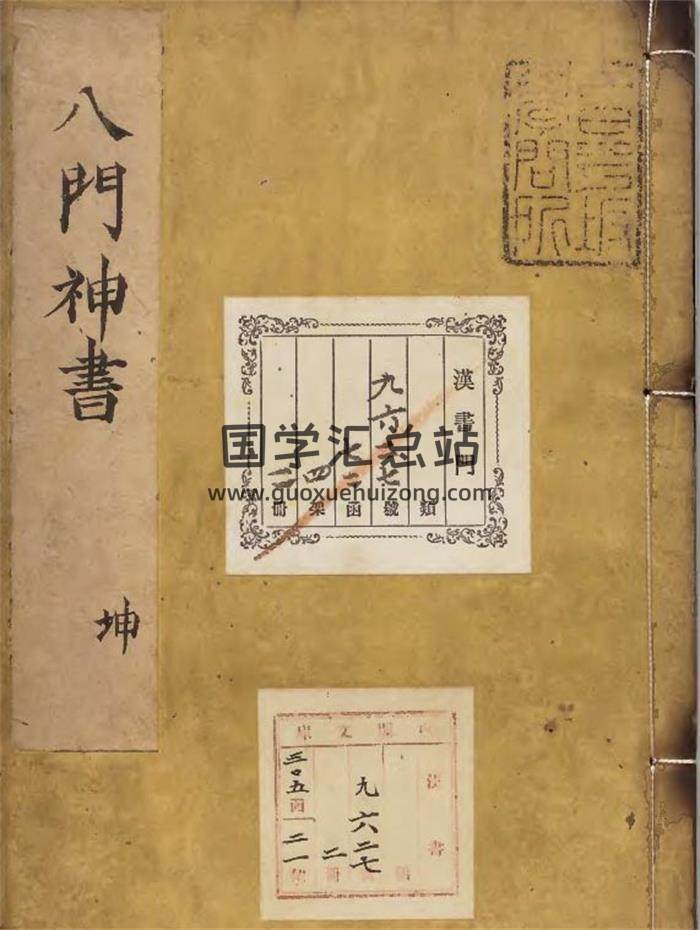 八門神書
坤
昌平坂
學問所
漢書門
類
九六二七號
函
四架
二冊
国学汇总站
www.guoxuehuizong.com
內閣文庫
漢書
九六二七號
二冊
三〇五函
二一架